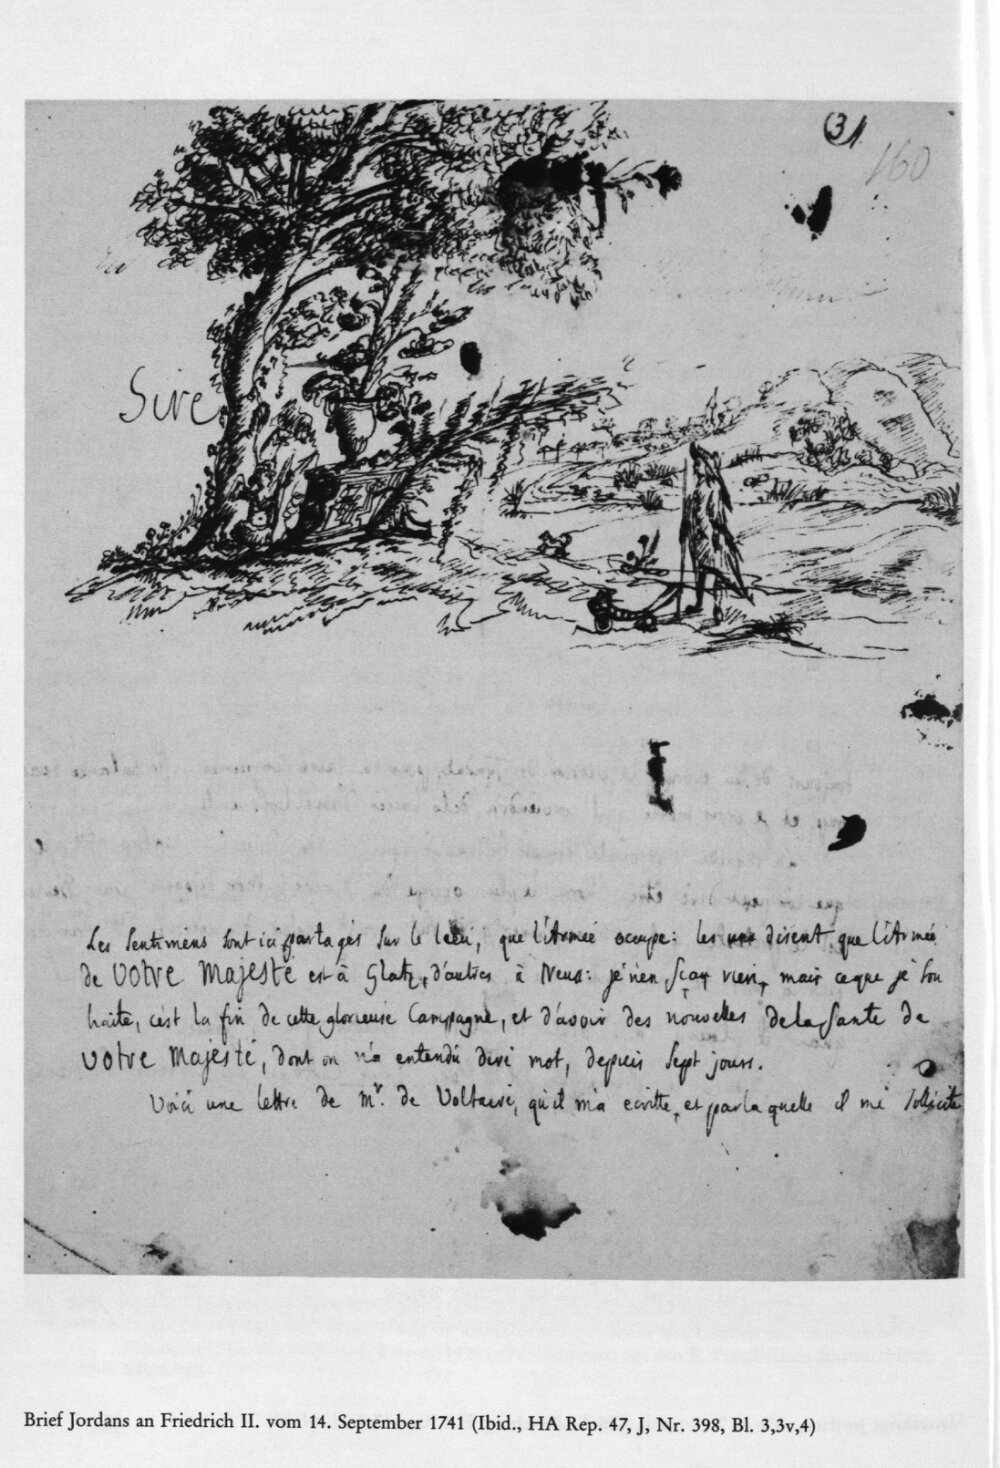 31
160
Sire
Les Sentimens sont ici partagés sur le lieu, que l'Armée occupe: les uns disent, que l'Armée
de Votre Majesté est à Glatz, d'autres à Neus: je n'en sçay rien, mais ce que je sou
haite, c'est la fin de cette glorieuse Campagne, et d'avoir des nouvelles de la Santé de
Votre Majesté, dont on n'a entendu dire mot, depuis sept jours.
Voici une lettre de Mr. de Voltaire, qu'il m'a ecritte, et par la quelle il me sollicite
Brief Jordans an Friedrich II. vom 14. September 1741 (Ibid., HA Rep. 47, J, Nr. 398, Bl. 3,3v,4)